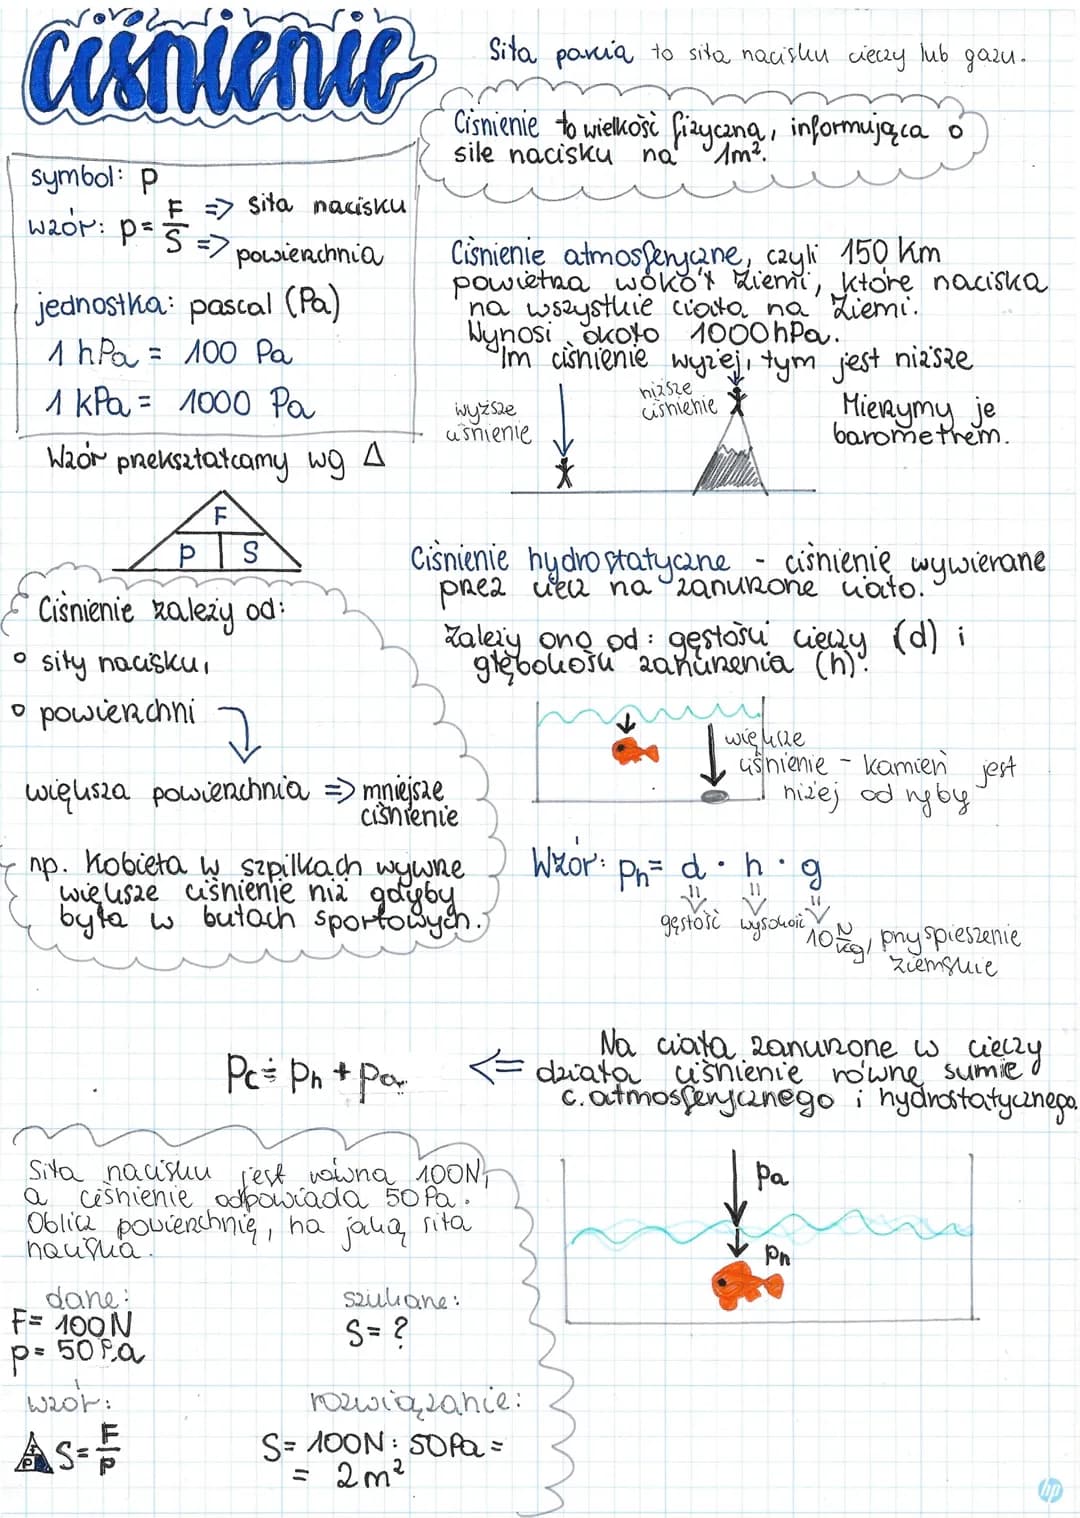 ciśnienie
Siła parcia to siła nacisku cieczy lub gazu.
Ciśnienie to wielkość fizyczna, informująca o
sile nacisku na 1m².
symbol: p
wzór: p = F/S => siła nacisku
=> powierzchnia
jednostka: pascal (Pa)
1 hPa = 100 Pa
1 kPa = 1000 Pa
Wzór przekształcamy wg Δ
F
p S
Ciśnienie atmosferyczne, czyli 150 km
powietrza wokół Ziemi, które naciska
na wszystkie ciała na Ziemi.
Wynosi około 1000 hPa.
Im ciśnienie wyżej, tym jest niższe
wyższe
ciśnienie
niższe
ciśnienie
Mierzymy je
barometrem.
Ciśnienie zależy od:
° siły nacisku,
° powierzchni
większa powierzchnia => mniejsze
ciśnienie
np. Kobieta w szpilkach wywrze
większe ciśnienie niż gdyby
była w butach sportowych.
Ciśnienie hydrostatyczne - ciśnienie wywierane
przez ciecz na zanurzone ciało.
Zależy ono od: gęstości cieczy (d) i
głębokości zanurzenia (h).
większe
ciśnienie - kamień jest
niżej od ryby
Wzór: ph = d · h · g
gęstość wysokość 10 N/kg, przyspieszenie
ziemskie
Pc = Ph + Pa
<= Na ciała zanurzone w cieczy
działa ciśnienie równe sumie
c. atmosferycznego i hydrostatycznego.
Pa
Ph
Siła nacisku jest równa 100N,
a ciśnienie odpowiada 50 Pa.
Oblicz powierzchnię, na jaką siła
naciska.
dane:
F = 100 N
p = 50 Pa
szukane:
S = ?
wzór:
S = F/p
rozwiązanie:
S = 100N : 50Pa =
= 2 m²
hp